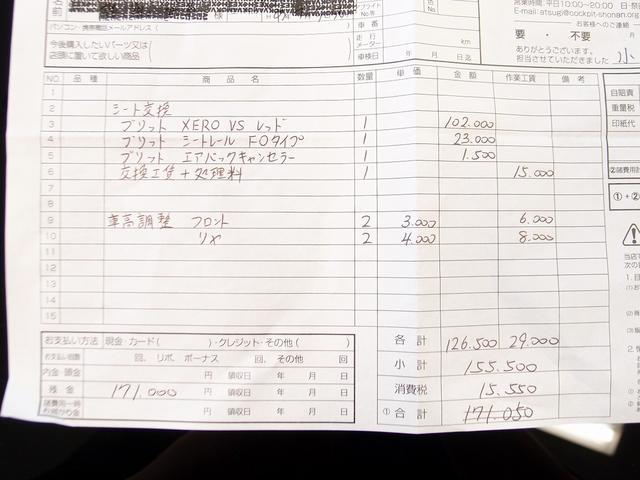 名前
様
フライト No.等
車番
走行メーター
km
車検日 年 月 日迄
営業時間:平日10:00~20:00 日・祭
E-mail: atsugi@cockpit-shonan.org
お客様へのご連絡
要 ・ 不要
ありがとうございます。
担当させていただきました 小
パソコン・携帯電話メールアドレス( )
今後購入したいパーツ又は
店頭に置いて欲しい商品
NO 品種 商品名 数量 単価 金額 作業工賃 備考
1
2 シート交換
3 ブリット XERO VS レッド 1 102.000
4 ブリット シートレール FOタイプ 1 23.000
5 ブリット エアバックキャンセラー 1 1.500
6 交換工賃+処理料 1 15.000
7
8
9 車高調整 フロント 2 3.000 6.000
10 リヤ 2 4.000 8.000
11
12
13
14
15
自賠責
重量税
印紙代
②諸費用
①+②
お支払い方法 現金・カード( )・クレジット・その他( )
お支払い回数 回、リボ、ボーナス 回、その他 回
内金・頭金 円 領収日 年 月 日
残金 171.000 円 領収日 年 月 日
円 領収日 年 月 日
各計 126.500 29.000
小計 155.500
消費税 15.550
①合計 171.050